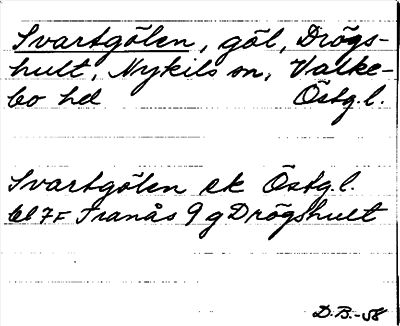 Svartgölen, göl, Drögs-
hult, Nykils sn, Valke-
bo hd Östg.l.
Svartgölen ek Östg.l.
bl 7F Tranås 9 g Drögshult
D.B.-58